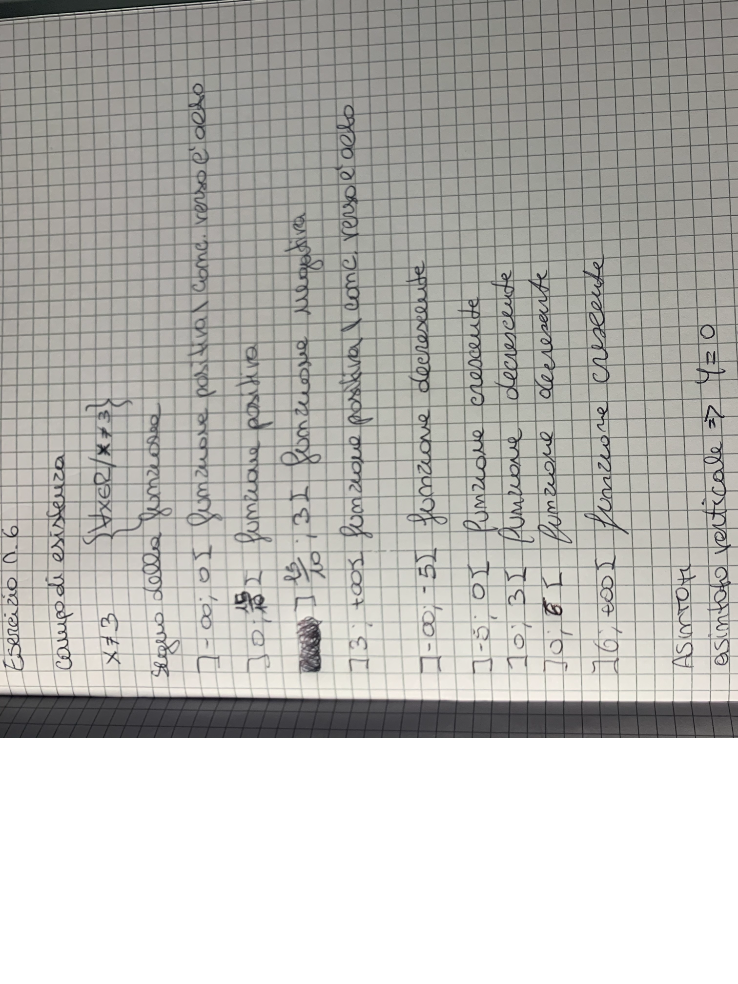 Esercizio n.6
campo di esistenza
x≠3 {∀x∈R/x≠3}
segno della funzione
]-∞; 0[ funzione positiva \ conc. verso l'alto
]0; 15/10[ funzione positiva
]15/10; 3[ funzione negativa
]3; +∞[ funzione positiva \ conc. verso l'alto
]-∞; -5[ funzione decrescente
]-5; 0[ funzione crescente
]0; 3[ funzione decrescente
]0; 6[ funzione decrescente
]6; +∞[ funzione crescente
Asintoti
asintoto verticale ⇒ y=0